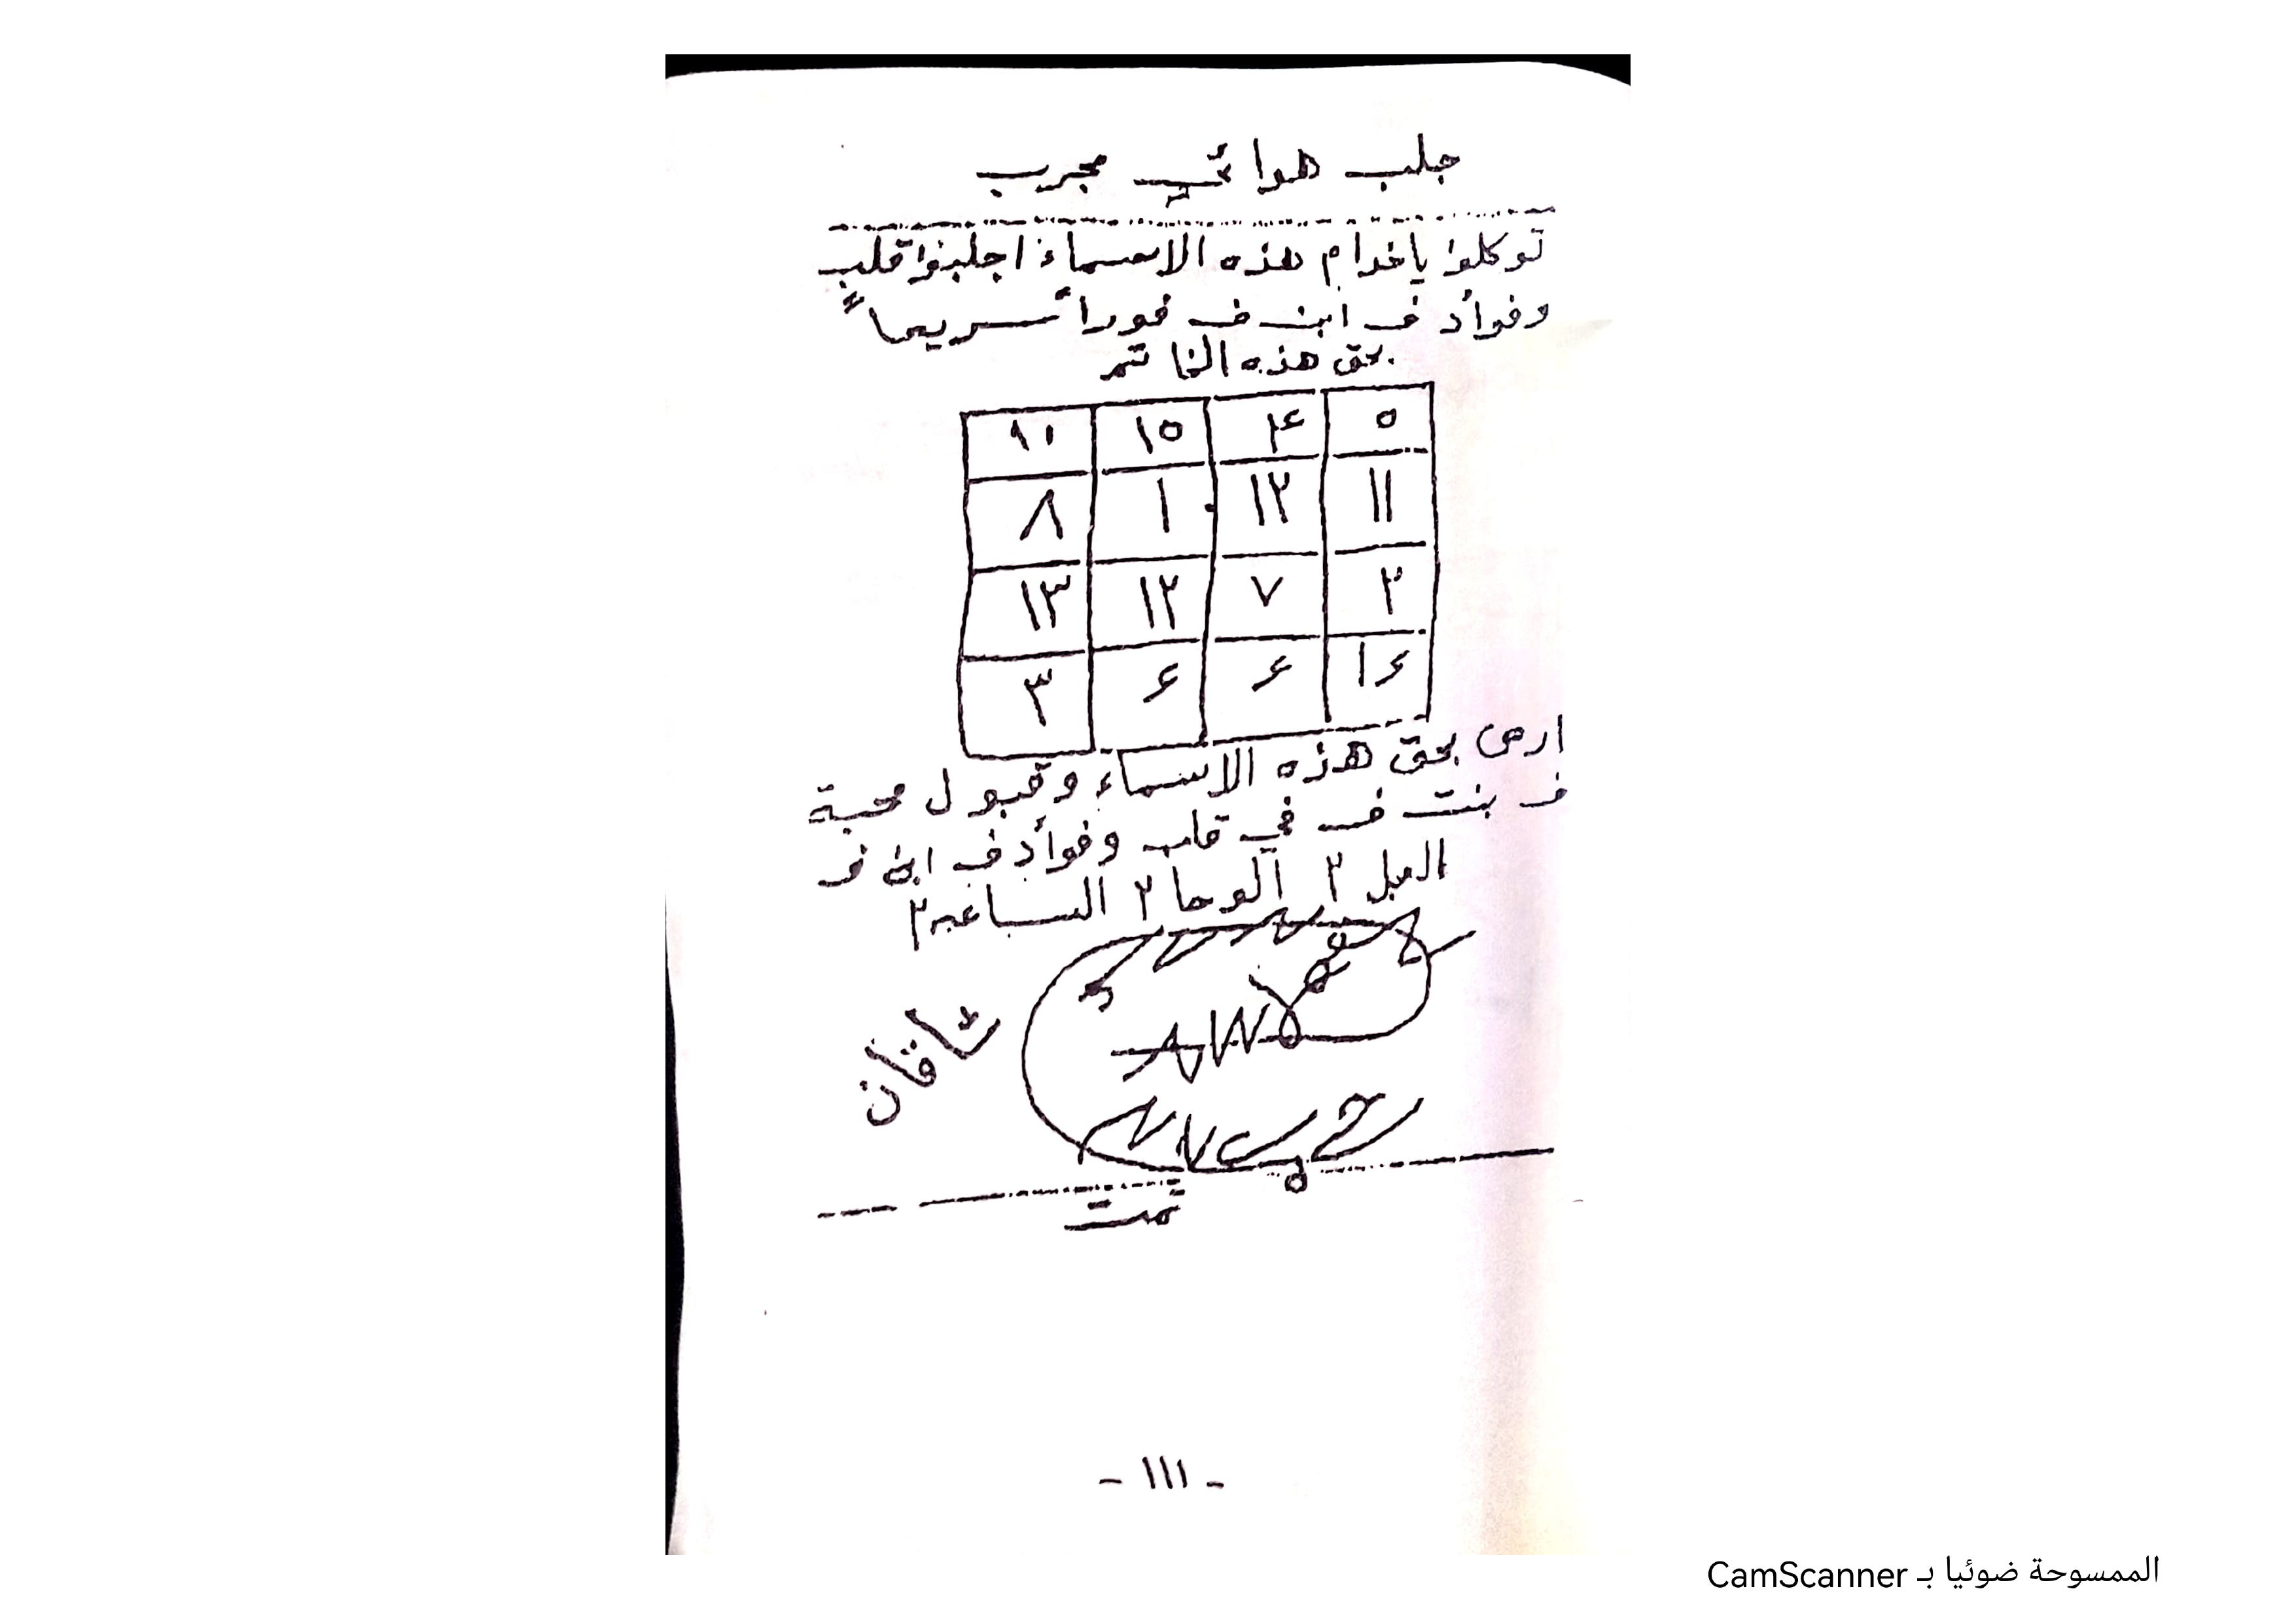 جلب هوائي مجرب
توكلوا ياخدام هذه الاسماء اجلبوا قلب
وفوأد ف ابن ف فوراً سريعاً
بحق هذه الخاتم
٥ ٤ ١٥
١١ ١٢ ١ ٨
٢ ٧ ١٢ ١٣
٣
بحق هذه الاسماء وقبول محبة
ف بنت ف في قلب وفوأد ف ابن ف
العجل ٢ الوحا ٢ الساعه ٢
تمت
- ١١١ -
الممسوحة ضوئيا بـ CamScanner